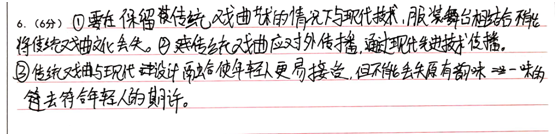 6.(6分)①要在保留传统戏曲艺术的情况下与现代技术,服装舞台相结合不能
将传统戏曲文化丢失。②传统戏曲应对外传播,通过现代先进技术传播。
③传统戏曲与现代设计融合使年轻人更易接受,但不能丢失原有韵味一味的
去符合年轻人的期许。